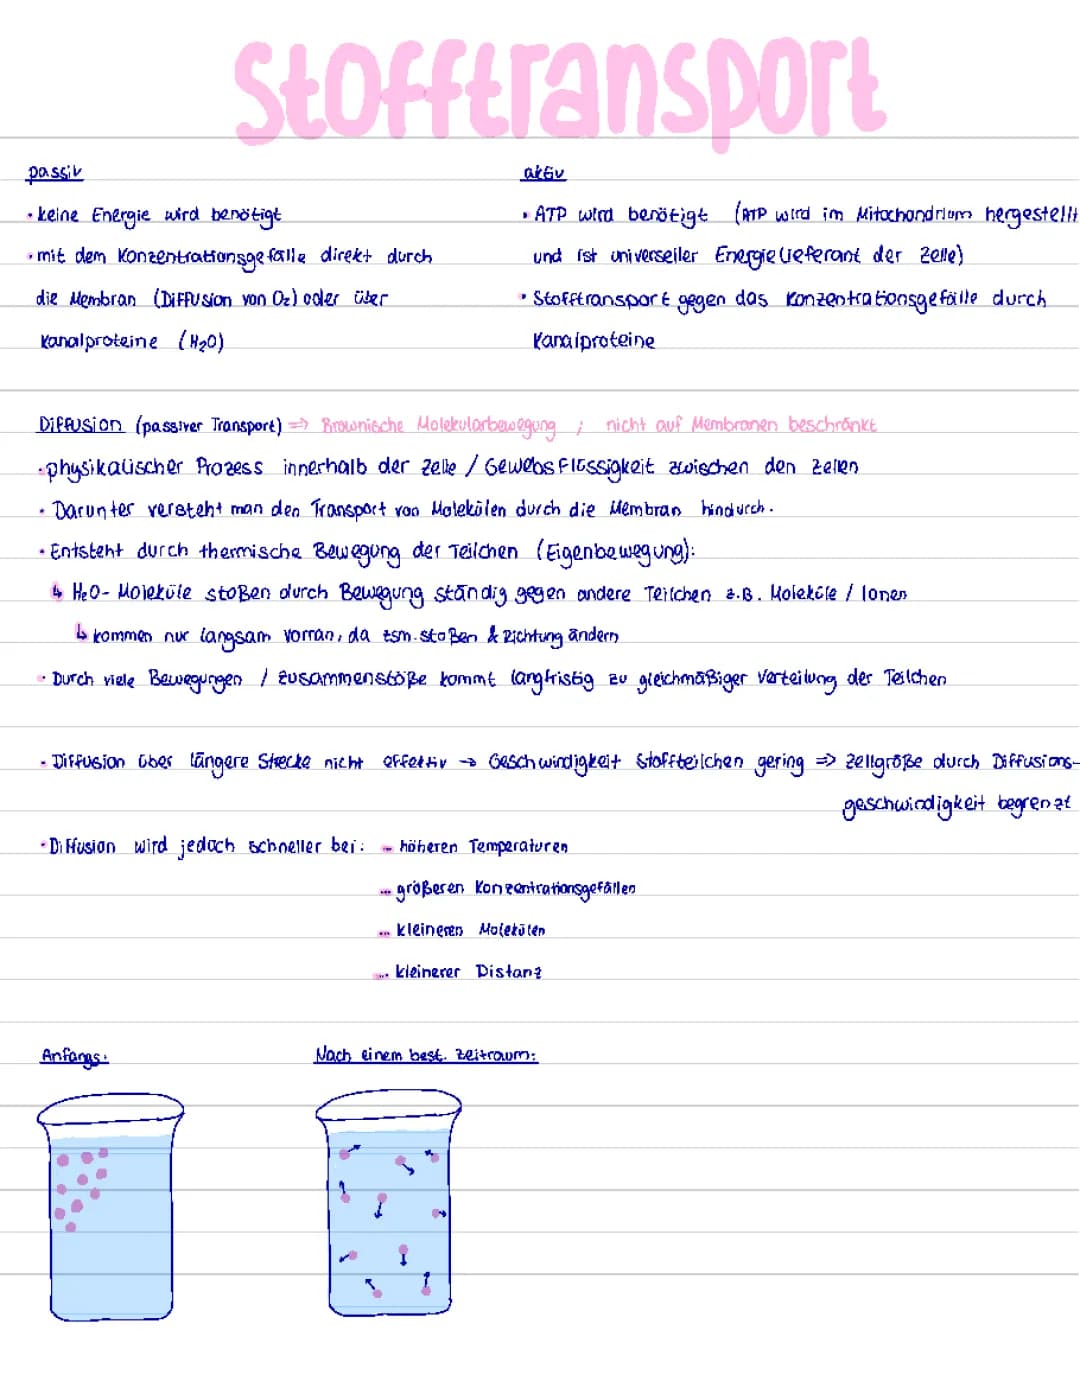 Stofftransport
passiv
• keine Energie wird benötigt
• mit dem Konzentrationsgefälle direkt durch
die Membran (Diffusion von O₂) oder über
Kanalproteine (H₂O)
aktiv
• ATP wird benötigt (ATP wird im Mitochondrium hergestellt
und ist universeller Energielieferant der Zelle)
• Stofftransport gegen das Konzentrationsgefälle durch
Kanalproteine
Diffusion (passiver Transport) => Brownische Molekularbewegung ; nicht auf Membranen beschränkt
• physikalischer Prozess innerhalb der Zelle / Gewebsflüssigkeit zwischen den Zellen
• Darunter versteht man den Transport von Molekülen durch die Membran hindurch.
• Entsteht durch thermische Bewegung der Teilchen (Eigenbewegung):
↳ H₂O- Moleküle stoßen durch Bewegung ständig gegen andere Teilchen z.B. Moleküle / Ionen
↳ kommen nur langsam vorran, da zsm. stoßen & Richtung ändern
• Durch viele Bewegungen / Zusammenstöße kommt langfristig zu gleichmäßiger Verteilung der Teilchen
• Diffusion über längere Strecke nicht effektiv → Geschwindigkeit Stoffteilchen gering => Zellgröße durch Diffusions-
geschwindigkeit begrenzt
• Diffusion wird jedoch schneller bei: ... höheren Temperaturen
... größeren Konzentrationsgefällen
... kleineren Molekülen
... kleinerer Distanz
Anfangs:
Nach einem best. Zeitraum: